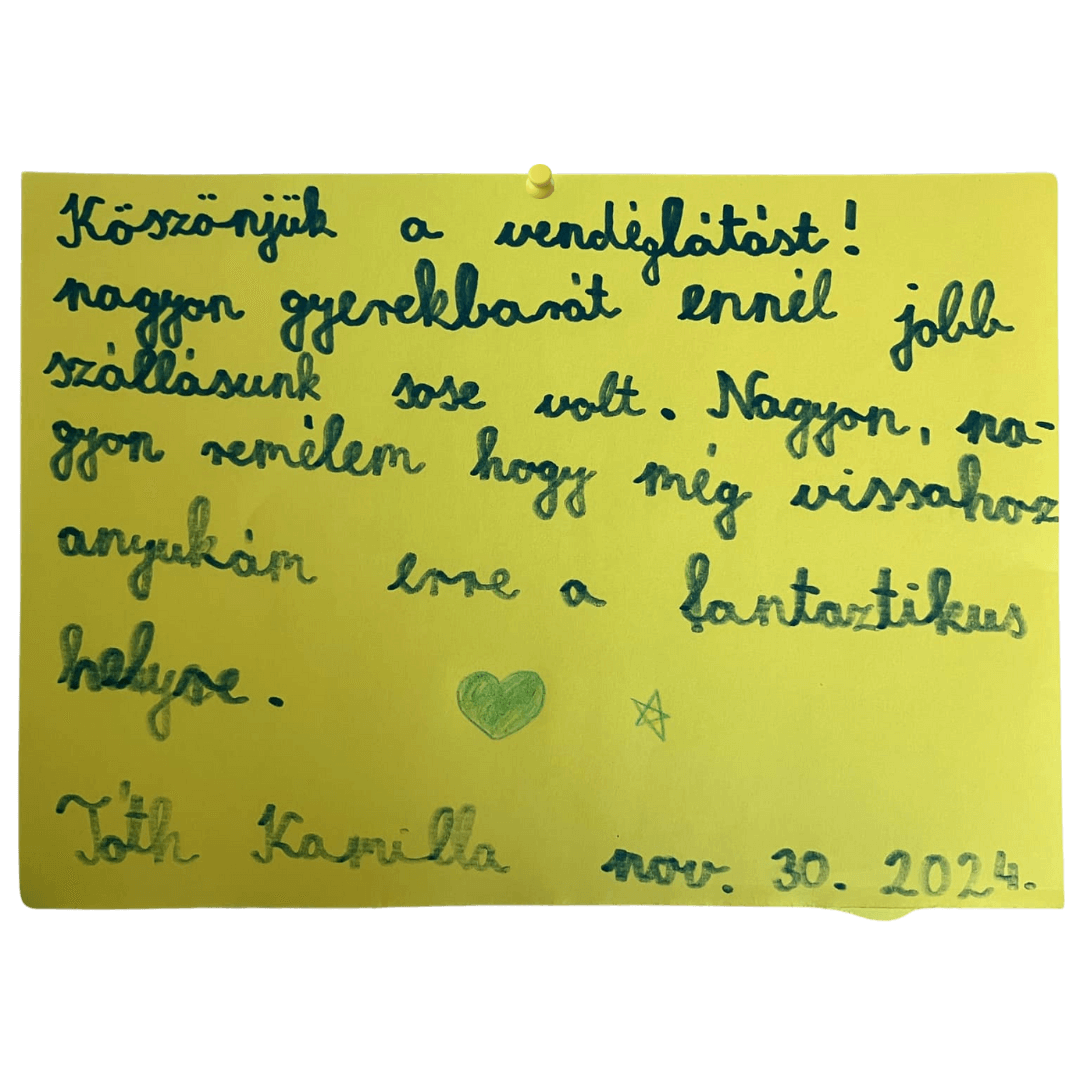 Köszönjük a vendéglátást!
nagyon gyerekbarát ennél jobb
szállásunk sose volt. Nagyon, na-
gyon remélem hogy még vissahoz
anyukám erre a fantaztikus
helyre.
Tóth Kamilla nov. 30. 2024.